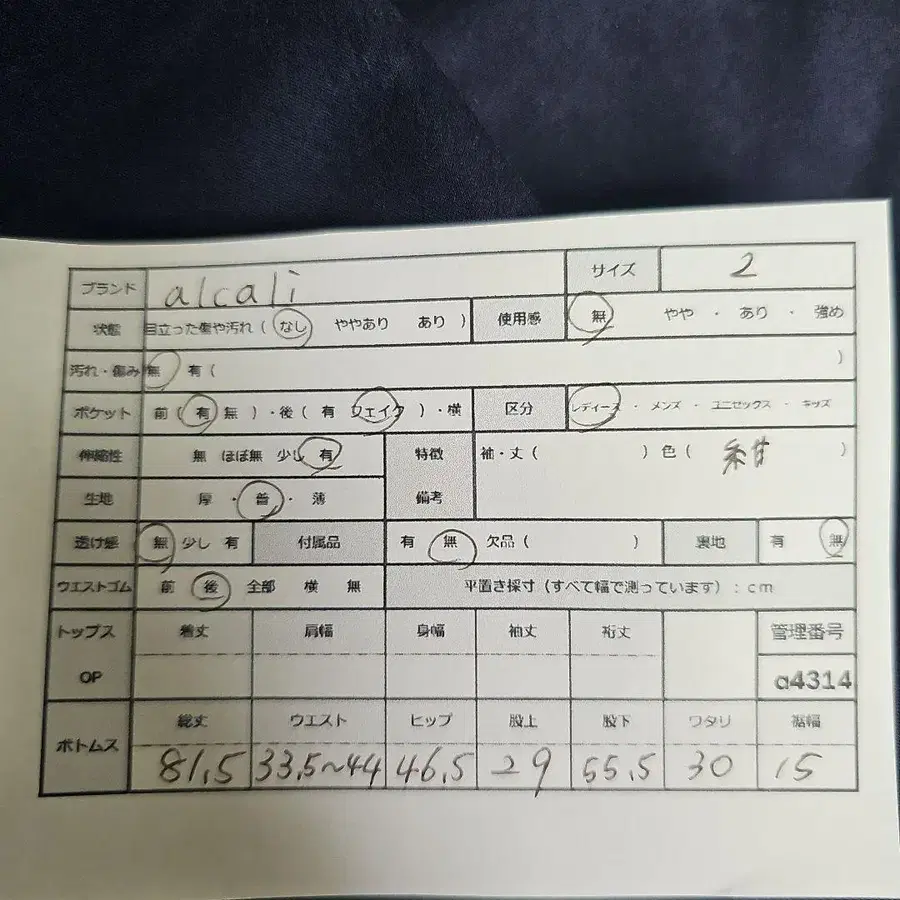 ブランド alcali サイズ 2
状態 目立った傷や汚れ ( なし ややあり あり ) 使用感 無 やや ・ あり ・ 強め
汚れ・傷み 無 有 ( )
ポケット 前 ( 有 無 ) ・後 ( 有 フェイク ) ・横 区分 レディース ・ メンズ ・ ユニセックス ・ キッズ
伸縮性 無 ほぼ無 少し 有 特徴 袖・丈 ( ) 色 ( 紺 )
生地 厚 ・ 普 ・ 薄 備考
透け感 無 少し 有 付属品 有 無 欠品 ( ) 裏地 有 無
ウエストゴム 前 後 全部 横 無 平置き採寸 (すべて幅で測っています) : cm
トップス 着丈 肩幅 身幅 袖丈 裄丈 管理番号
OP a4314
ボトムス 総丈 ウエスト ヒップ 股上 股下 ワタリ 裾幅
81.5 33.5~44 46.5 29 55.5 30 15